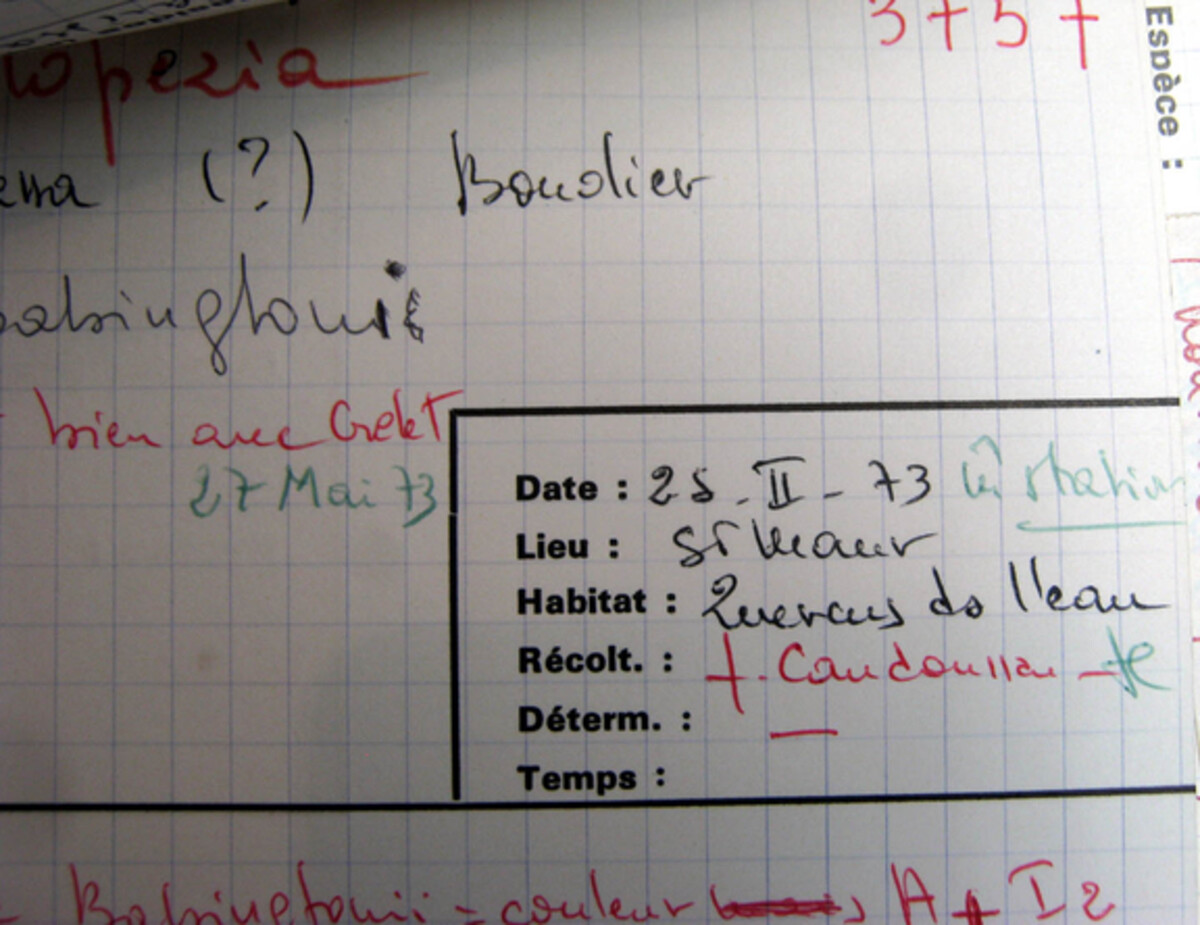 3737
Espèce :
opezia
(?) Boudier
babingtonii
bien avec Grelet
27 Mai 73
Date : 25 - II - 73 in station
Lieu : St Maur
Habitat : Quercus ds l'eau
Récolt. : f. Candoussau -
Déterm. : —
Temps :
- Babingtonii = couleur A + I 2